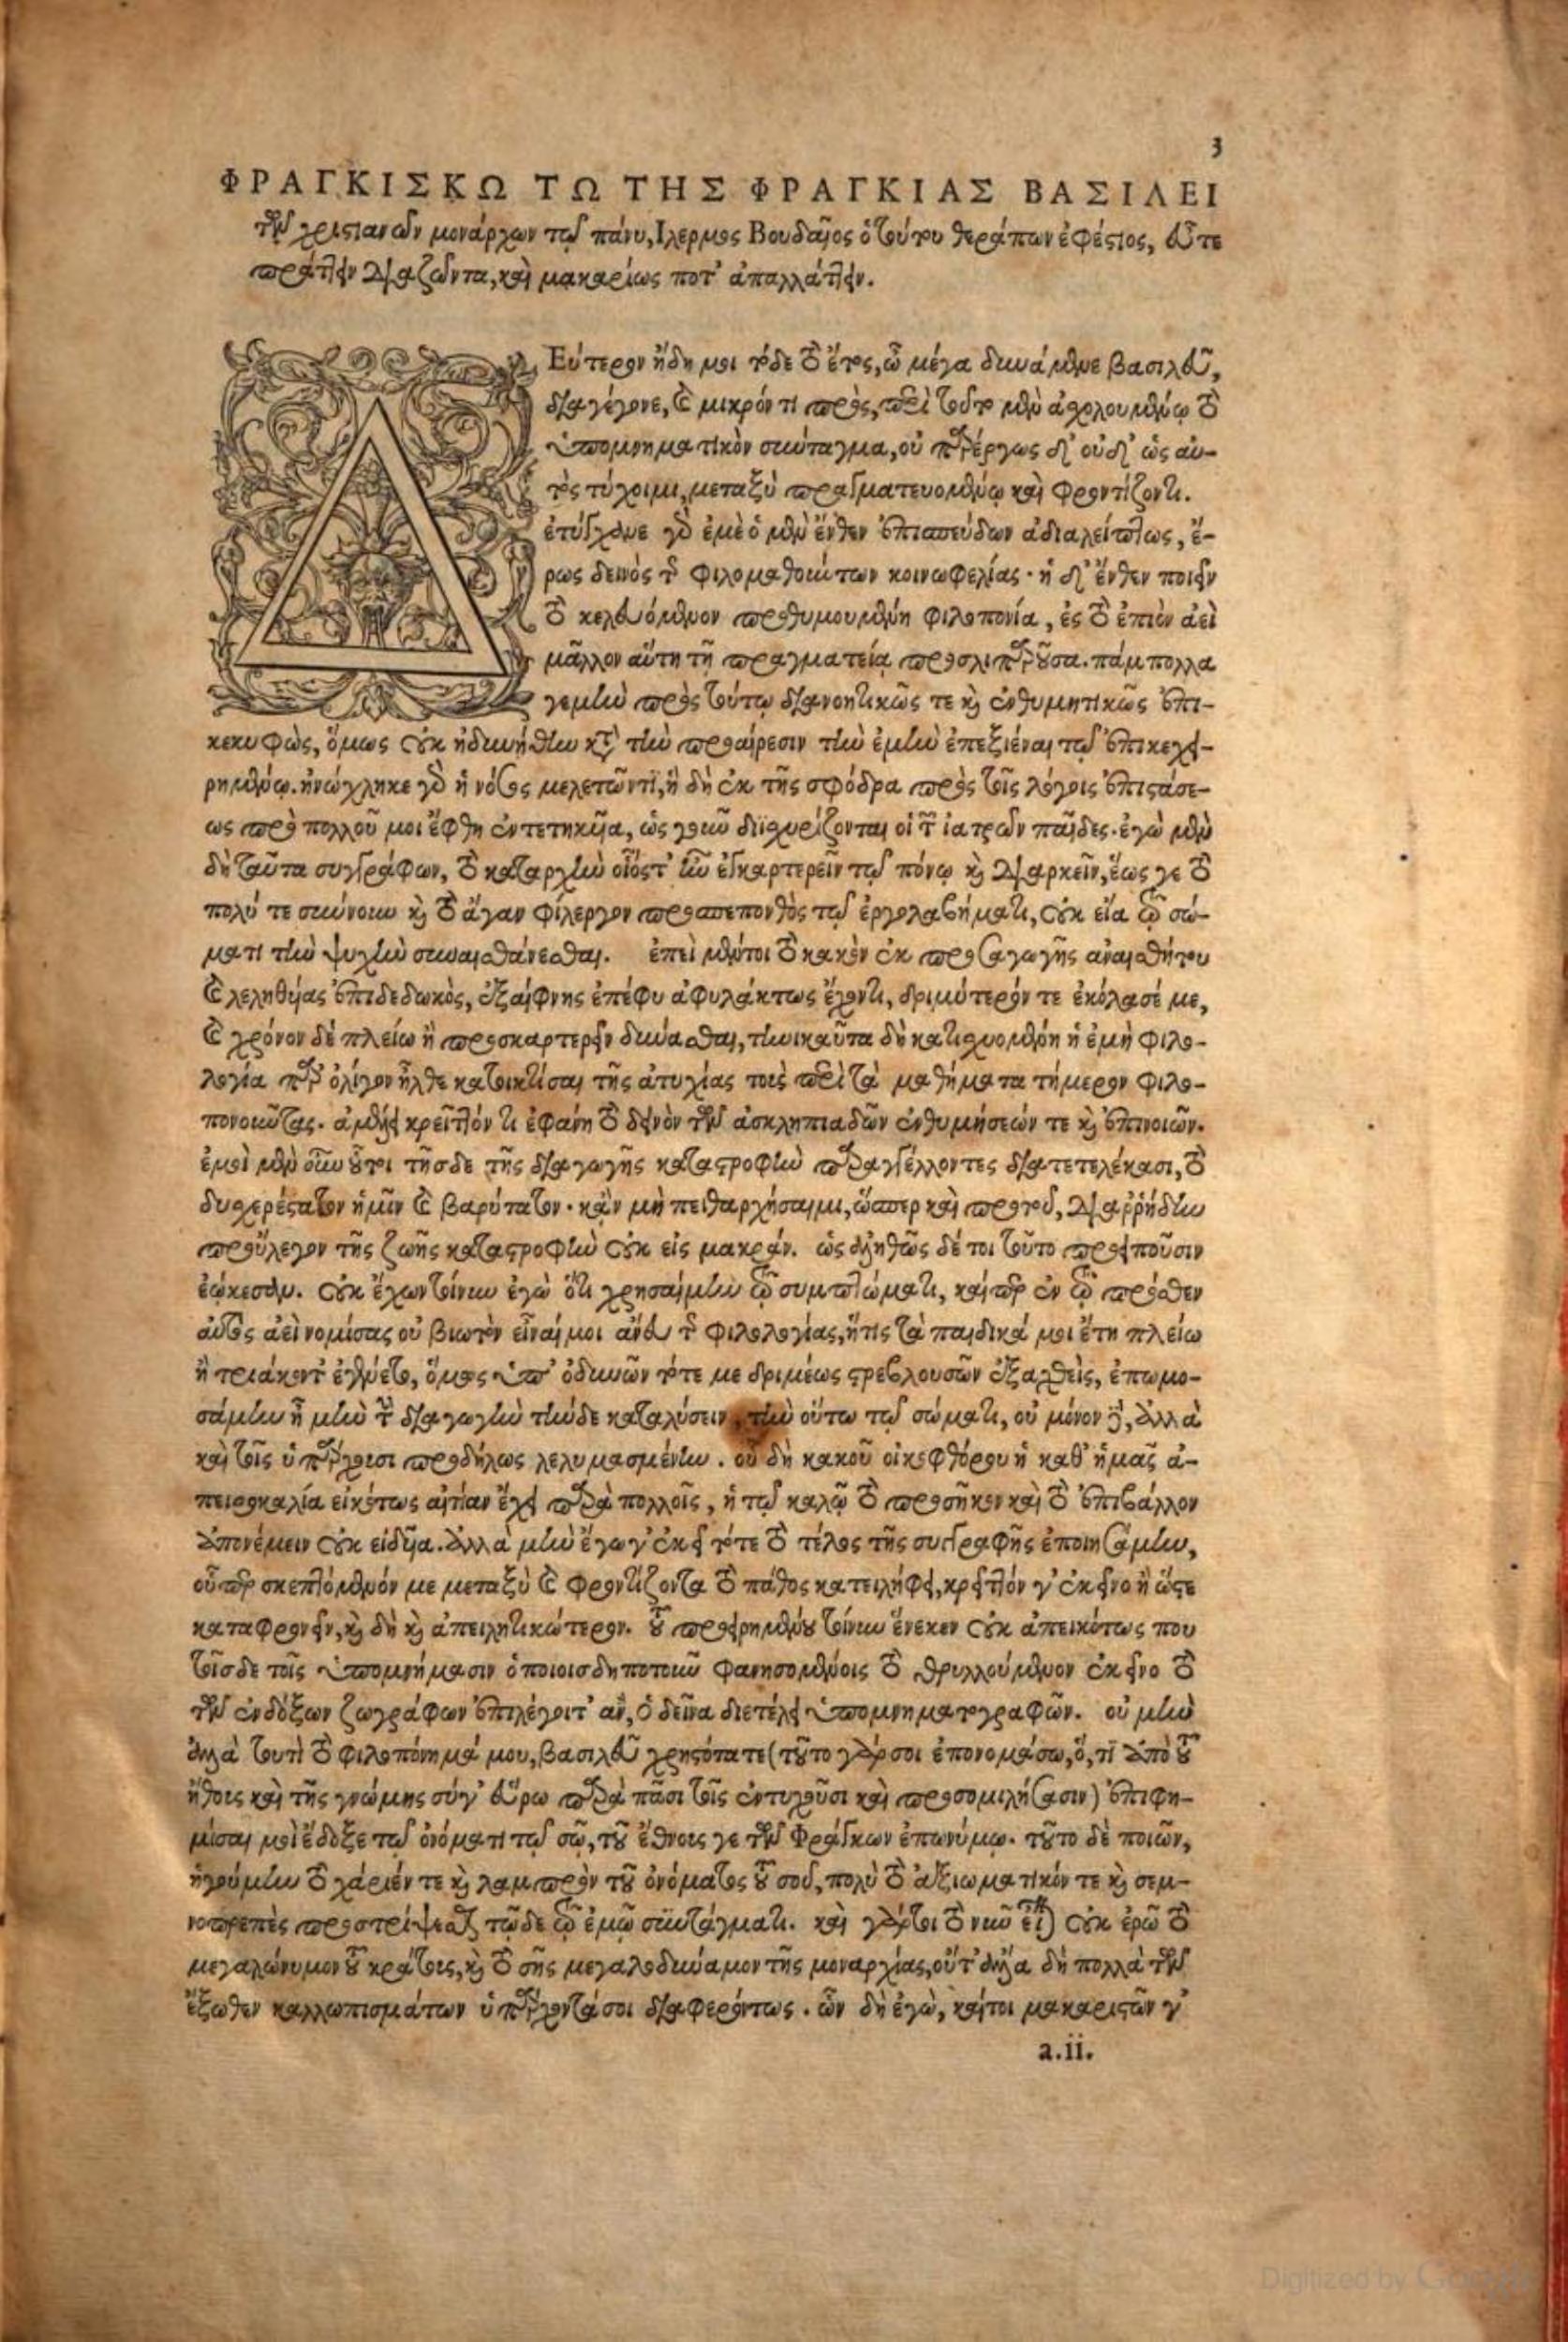 3
ΦΡΑΓΚΙΣΚΩ ΤΩ ΤΗΣ ΦΡΑΓΚΙΑΣ ΒΑΣΙΛΕΙ
τῶν χριστιανῶν μονάρχων τῷ πάνυ, Ιλερμος Βουδαῖος ὁ τούτου θεράπων ἐφέστιος, εὖ τε
πράττειν διαζῶντα, καὶ μακαρίως ποτ' ἀπαλλάττειν.
ΔΕύτερον ἤδη μοι τόδε τὸ ἔτος, ὦ μέγα δυνάμενε βασιλεῦ,
διαγέγονε, καὶ μικρόν τι πρὸς, περὶ τοῦτο μὲν ἀσχολουμένῳ τὸ
ὑπομνηματικὸν σύνταγμα, οὐ παρέργως δ' οὐδ' ὡς αὐ-
τὸς τύχοιμι, μεταξὺ πραγματευομένῳ καὶ φροντίζοντι.
ἐτύγχανε γὰρ ἐμὲ ὁ μὲν ἔνθεν ἐπισπεύδων ἀδιαλείπτως, ἔ-
ρως δεινὸς τῆς φιλομαθούντων κοινωφελίας· ἡ δ' ἔνθεν ποιεῖν
τὸ κελευόμενον προθυμουμένη φιλοπονία, ἐς τὸ ἐπιὸν ἀεὶ
μᾶλλον αὕτη τῇ πραγματείᾳ προσλιπαροῦσα. πάμπολλα
γεμὴν πρὸς τούτῳ διανοητικῶς τε καὶ ἐνθυμητικῶς ἐπι-
κεκυφὼς, ὅμως οὐκ ἠδυνήθην κατὰ τὴν προαίρεσιν τὴν ἐμὴν ἐπεξιέναι τῷ ἐπικεχει-
ρημένῳ. ἠνώχληκε γὰρ ἡ νόσος μελετῶντι, ἣ δὴ ἐκ τῆς σφόδρα πρὸς τοῖς λόγοις ἐπιστάσε-
ως πρὸ πολλοῦ μοι ἔφθη ἐντετηκυῖα, ὡς γοῦν διϊσχυρίζονται οἱ τῶν ἰατρῶν παῖδες. ἐγὼ μὲν
δὴ ταῦτα συγγράφων, τὸ καταρχὴν οἷός τ' ἦν ἐγκαρτερεῖν τῷ πόνῳ καὶ διαρκεῖν, ἕως γε τὸ
πολύ τε σύννουν καὶ τὸ ἄγαν φίλεργον προσπεπονθὸς τῷ ἐργολαβήματι, οὐκ εἴα τῷ σώ-
ματι τὴν ψυχὴν συναισθάνεσθαι. ἐπεὶ μέντοι τὸ κακὸν ἐκ προσαγωγῆς ἀναισθήτου
καὶ λεληθυίας ἐπιδεδωκὸς, ἐξαίφνης ἐπέφυ ἀφυλάκτως ἔχοντι, δριμύτερόν τε ἐκόλασέ με,
καὶ χρόνον δὲ πλείω ἢ προσκαρτερεῖν δύνασθαι, τηνικαῦτα δὴ κατισχυομένη ἡ ἐμὴ φιλο-
λογία παρ' ὀλίγον ἦλθε κατοικτίσαι τῆς ἀτυχίας τοὺς περὶ τὰ μαθήματα τήμερον φιλο-
πονοῦντας. ἀμέλει κρεῖττόν τι ἐφάνη τὸ δεινὸν τῶν ἀσκληπιαδῶν ἐνθυμήσεών τε καὶ ἐπινοιῶν.
ἐμοὶ μὲν οὖν οὗτοι τῆσδε τῆς διαγωγῆς καταστροφὴν παραγγέλλοντες διατετελέκασι, τὸ
δυσχερέστατον ἡμῖν καὶ βαρύτατον· κἂν μὴ πειθαρχήσαιμι, ὥσπερ καὶ προτοῦ, διαρρήδην
προὔλεγον τῆς ζωῆς καταστροφὴν οὐκ εἰς μακράν. ὡς ἀληθῶς δέ τοι τοῦτο προειποῦσιν
ἐῴκεσαν. οὐκ ἔχων τοίνυν ἐγὼ ὅτι χρησαίμην τῷ συμπτώματι, καίπερ ἐν τῷ πρόσθεν
αὐτὸς ἀεὶ νομίσας οὐ βιωτὸν εἶναί μοι ἄνευ τῆς φιλολογίας, ἥτις τὰ παιδικά μοι ἔτη πλείω
ἢ τριάκοντ' ἐγένετο, ὅμως ὑπ' ὀδυνῶν τότε με δριμέως στρεβλουσῶν ἐξαχθεὶς, ἐπωμο-
σάμην ἦ μὴν τὴν διαγωγὴν τήνδε καταλύσειν, τὴν οὕτω τῷ σώματι, οὐ μόνον δὲ, ἀλλὰ
καὶ τοῖς ὑπάρχουσι προδήλως λελυμασμένην. οὗ δὴ κακοῦ οἰκοφθόρου ἡ καθ' ἡμᾶς ἀ-
πειροκαλία εἰκότως αἰτίαν ἔχει παρὰ πολλοῖς, ἡ τῷ καλῷ τὸ προσῆκον καὶ τὸ ἐπιβάλλον
ἀπονέμειν οὐκ εἰδυῖα. ἀλλὰ μὴν ἔγωγ' ἐκεῖ τότε τὸ τέλος τῆς συγγραφῆς ἐποιησάμην,
οὗπερ σκεπτόμενόν με μεταξὺ καὶ φροντίζοντα τὸ πάθος κατειλήφει, κρεῖττόν γ' ἐκεῖνο ἢ ὥστε
καταφρονεῖν, καὶ δὴ καὶ ἀπειλητικώτερον. τοῦ προειρημένου τοίνυν ἕνεκεν οὐκ ἀπεικότως που
τοῖσδε τοῖς ὑπομνήμασιν ὁποιοισδηποτοῦν φανησομένοις τὸ θρυλλούμενον ἐκεῖνο τὸ
τῶν ἐνδόξων ζωγράφων ἐπιλέγοιτ' ἂν, ὁ δεῖνα διετέλει ὑπομνηματογραφῶν. οὐ μὴν
ἀλλὰ τουτὶ τὸ φιλοπόνημά μου, βασιλεῦ χρηστότατε (τοῦτο γάρ σοι ἐπονομάσω, ὅ, τι ἀπὸ τοῦ
ἤθους καὶ τῆς γνώμης σύγ' εὗρω παρὰ πᾶσι τοῖς ἐντυχοῦσι καὶ προσομιλήσασιν) ἐπιφη-
μίσαι μοι ἔδοξε τῷ ὀνόματι τῷ σῷ, τοῦ ἔθνους γε τῶν Φράγκων ἐπωνύμῳ. τοῦτο δὲ ποιῶν,
ἡγούμην τὸ χάριέν τε καὶ λαμπρὸν τοῦ ὀνόματος τοῦ σοῦ, πολὺ τὸ ἀξιωματικόν τε καὶ σεμ-
νοπρεπὲς προστρίψεσθαι τῷδε τῷ ἐμῷ συντάγματι. καὶ γάρτοι τὸ νῦν εἶναι οὐκ ἐρῶ τὸ
μεγαλώνυμον τοῦ κράτους, καὶ τὸ σῆς μεγαλοδύναμον τῆς μοναρχίας, οὔτ' ἄλλα δὴ πολλὰ τῶν
ἔξωθεν καλλωπισμάτων ὑπάρχοντά σοι διαφερόντως. ὧν δὴ ἐγὼ, καίτοι μακαριστῶν γ'
a.ii.
Digitized by Google